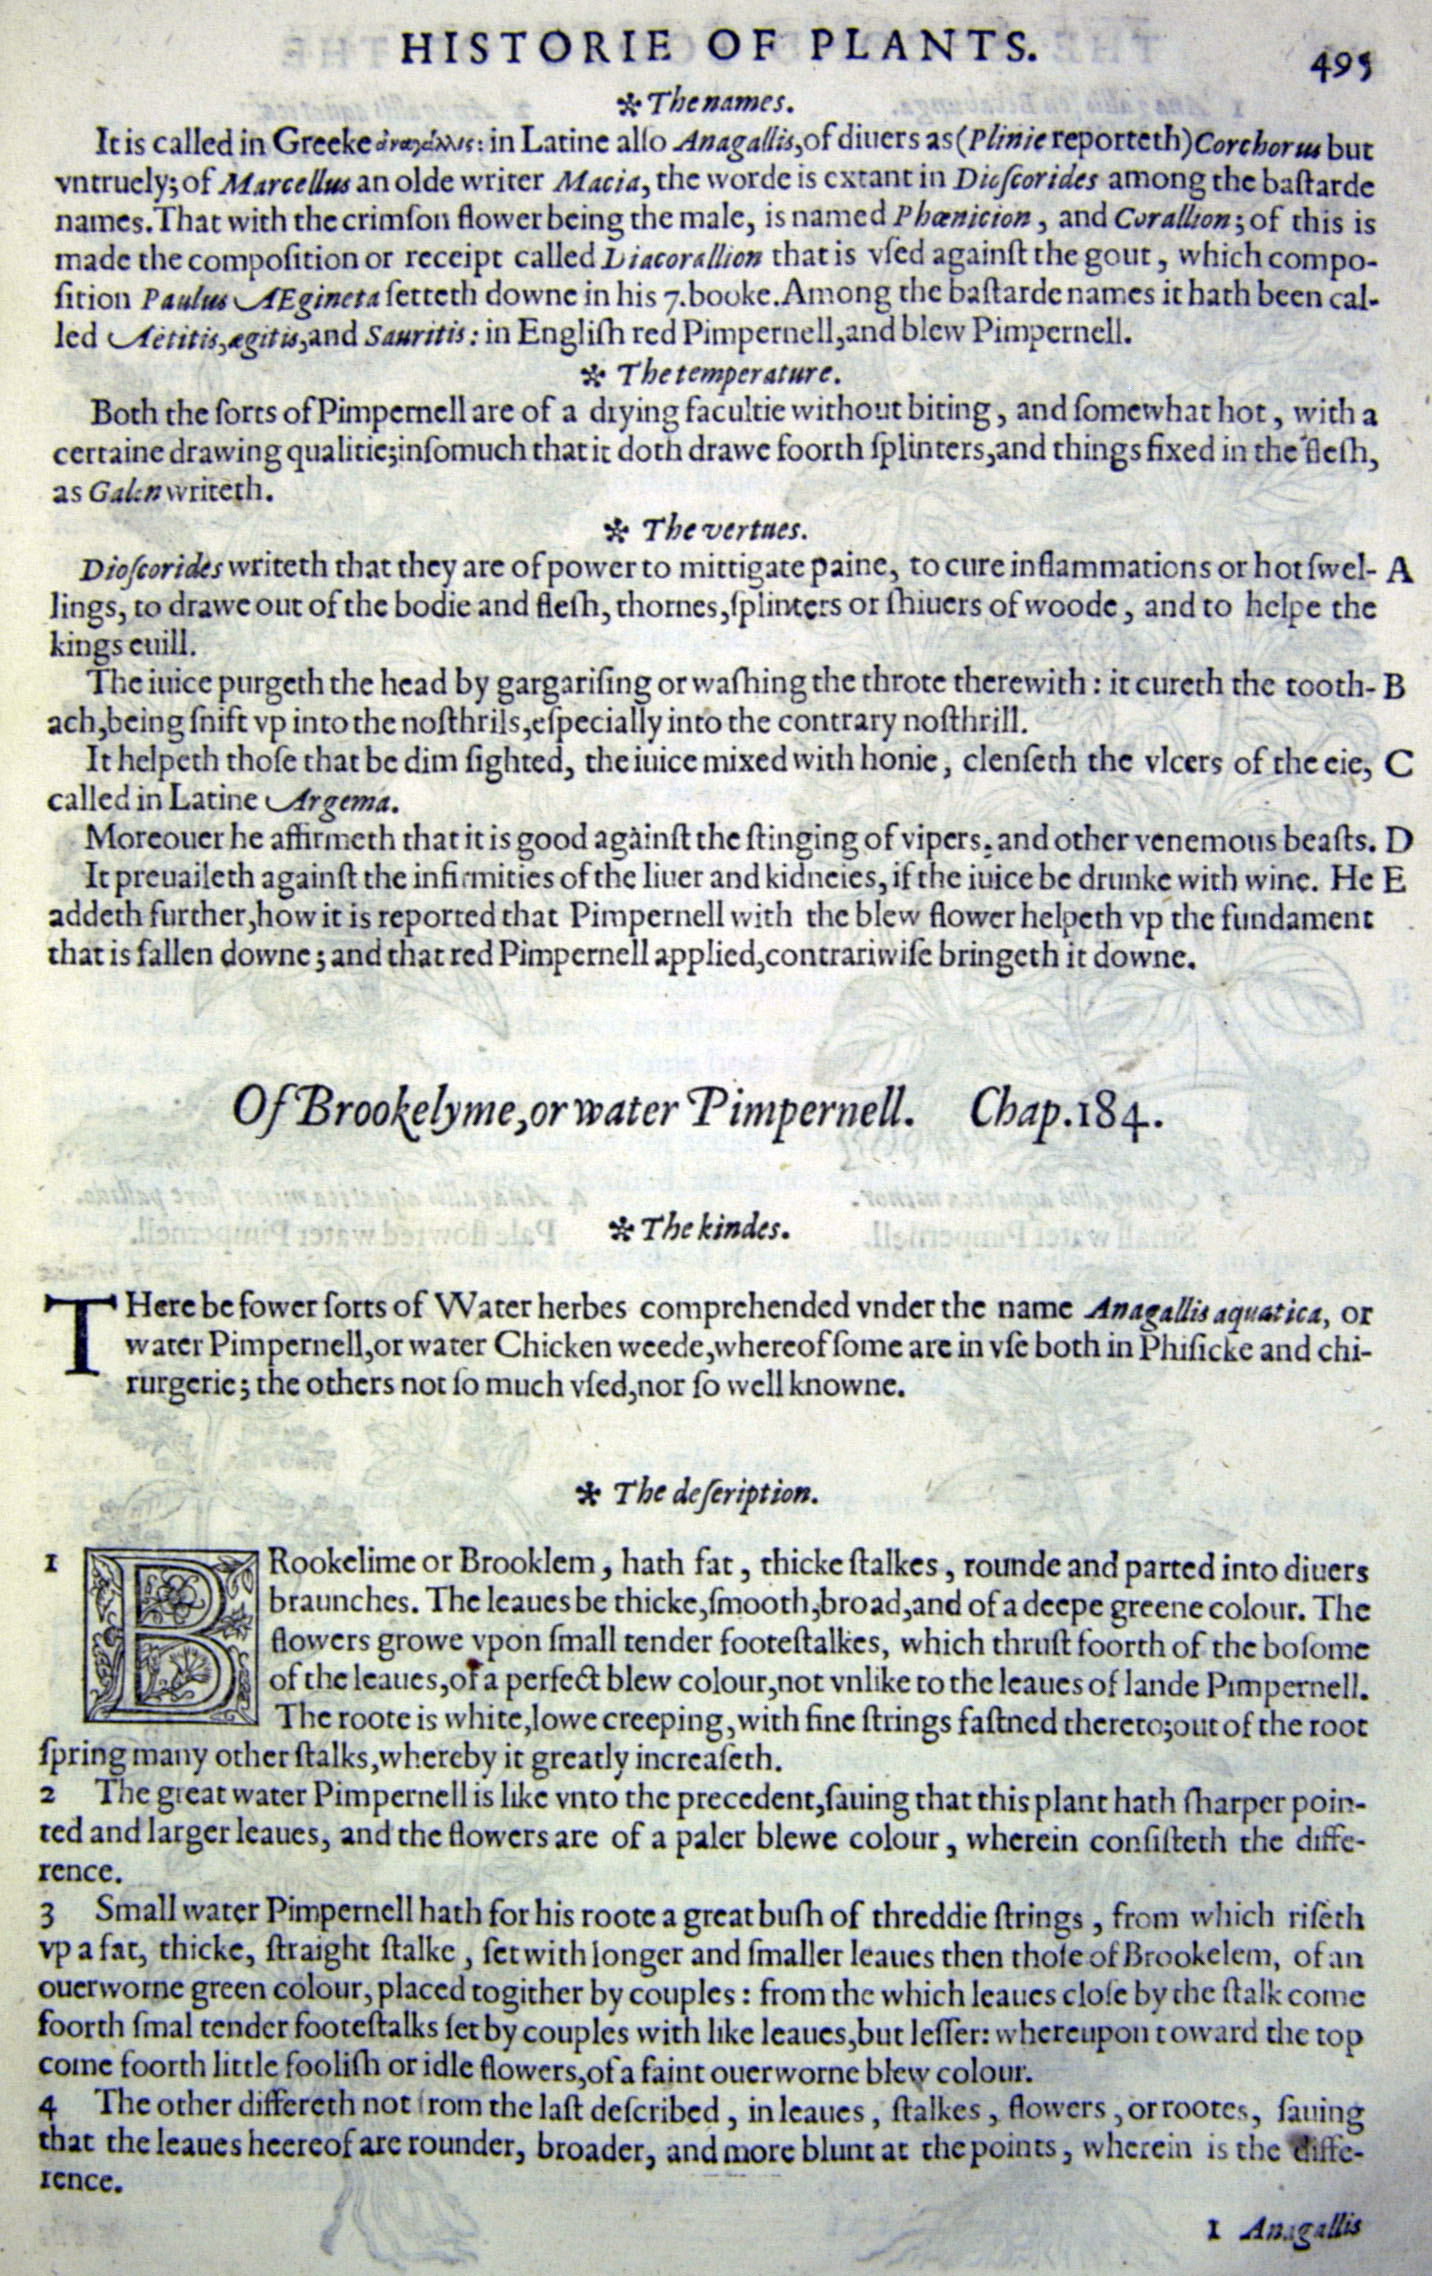 HISTORIE OF PLANTS. 495
❊ The names.
It is called in Greeke ἀναγαλλις: in Latine alſo Anagallis, of diuers as (Plinie reporteth) Corchorus but
vntruely; of Marcellus an olde writer Macia, the worde is extant in Dioſcorides among the baſtarde
names. That with the crimſon flower being the male, is named Phœnicion, and Corallion; of this is
made the compoſition or receipt called Diacorallion that is vſed againſt the gout, which compo-
ſition Paulus AEgineta ſetteth downe in his 7. booke. Among the baſtarde names it hath been cal-
led Aëtitis, ægitis, and Sauritis: in Engliſh red Pimpernell, and blew Pimpernell.
❊ The temperature.
Both the ſorts of Pimpernell are of a drying facultie without biting, and ſomewhat hot, with a
certaine drawing qualitie; inſomuch that it doth drawe foorth ſplinters, and things fixed in the fleſh,
as Galen writeth.
❊ The vertues.
Dioſcorides writeth that they are of power to mittigate paine, to cure inflammations or hot ſwel- A
lings, to drawe out of the bodie and fleſh, thornes, ſplinters or ſhiuers of woode, and to helpe the
kings euill.
The iuice purgeth the head by gargariſing or waſhing the throte therewith: it cureth the tooth- B
ach, being ſnift vp into the noſthrils, eſpecially into the contrary noſthrill.
It helpeth thoſe that be dim ſighted, the iuice mixed with honie, clenſeth the vlcers of the eie, C
called in Latine Argema.
Moreouer he affirmeth that it is good againſt the ſtinging of vipers, and other venemous beaſts. D
It preuaileth againſt the infirmities of the liuer and kidneies, if the iuice be drunke with wine. He E
addeth further, how it is reported that Pimpernell with the blew flower helpeth vp the fundament
that is fallen downe; and that red Pimpernell applied, contrariwiſe bringeth it downe.
Of Brookelyme, or water Pimpernell. Chap. 184.
❊ The kindes.
THere be fower ſorts of Water herbes comprehended vnder the name Anagallis aquatica, or
water Pimpernell, or water Chicken weede, whereof ſome are in vſe both in Phiſicke and chi-
rurgerie; the others not ſo much vſed, nor ſo well knowne.
❊ The deſcription.
1 BRookelime or Brooklem, hath fat, thicke ſtalkes, rounde and parted into diuers
braunches. The leaues be thicke, ſmooth, broad, and of a deepe greene colour. The
flowers growe vpon ſmall tender footeſtalkes, which thruſt foorth of the boſome
of the leaues, of a perfect blew colour, not vnlike to the leaues of lande Pimpernell.
The roote is white, lowe creeping, with fine ſtrings faſtned thereto; out of the root
ſpring many other ſtalks, whereby it greatly increaſeth.
2 The great water Pimpernell is like vnto the precedent, ſauing that this plant hath ſharper poin-
ted and larger leaues, and the flowers are of a paler blewe colour, wherein conſiſteth the diffe-
rence.
3 Small water Pimpernell hath for his roote a great buſh of threddie ſtrings, from which riſeth
vp a fat, thicke, ſtraight ſtalke, ſet with longer and ſmaller leaues then thoſe of Brookelem, of an
ouerworne green colour, placed togither by couples: from the which leaues cloſe by the ſtalk come
foorth ſmal tender footeſtalks ſet by couples with like leaues, but leſſer: whereupon toward the top
come foorth little fooliſh or idle flowers, of a faint ouerworne blew colour.
4 The other differeth not from the laſt deſcribed, in leaues, ſtalkes, flowers, or rootes, ſauing
that the leaues heereof are rounder, broader, and more blunt at the points, wherein is the diffe-
rence.
1 Anagallis